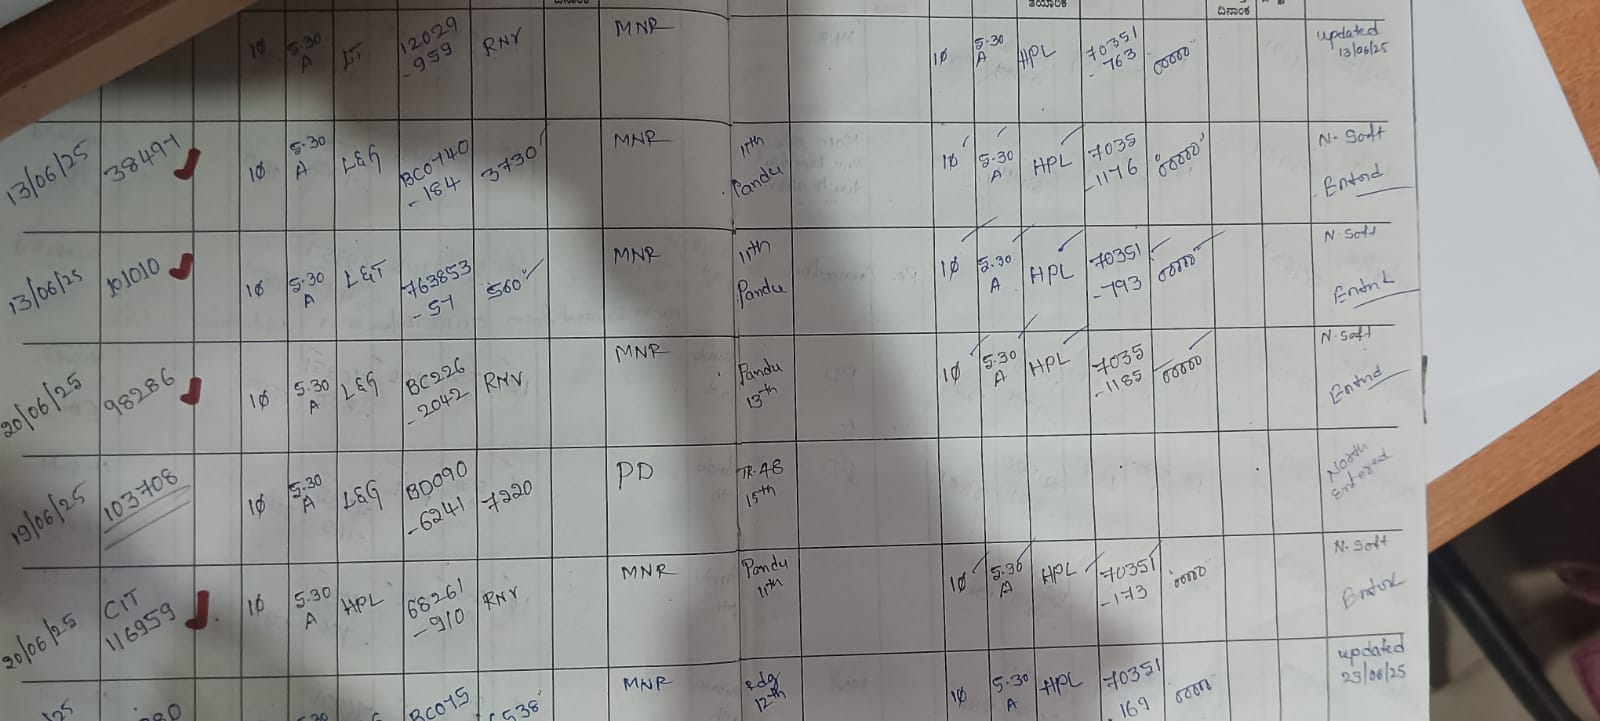 ದಿನಾಂಕ
10 5-30 A LT 12029 -959 RNV MNR 10 5-30 A HPL 70351 -763 00000 updated 13/06/25
13/06/25 38497 10 5-30 A L&G BC0740 -184 3730 MNR 11th Pandu 10 5-30 A HPL 7035 -1176 00000 N-Soft Entrd
13/06/25 101010 10 5-30 A L&T 763853 -57 560 MNR 11th Pandu 10 5-30 A HPL 70351 -793 00000 N-Soft Entrd
20/06/25 98286 10 5-30 A L&G BC226 -2042 RNV MNR Pandu 13th 10 5-30 A HPL 7035 -1185 00000 N-Soft Entrd
19/06/25 103708 10 5-30 A L&G BD090 -6241 7220 PD TR-48 15th North Entered
20/06/25 CIT 116959 10 5-30 A HPL 68261 -910 RNV MNR Pandu 11th 10 5-30 A HPL 70351 -173 00000 N-Soft Entrd
MNR 12th 10 5-30 A HPL 70351 169 00000 updated 23/06/25